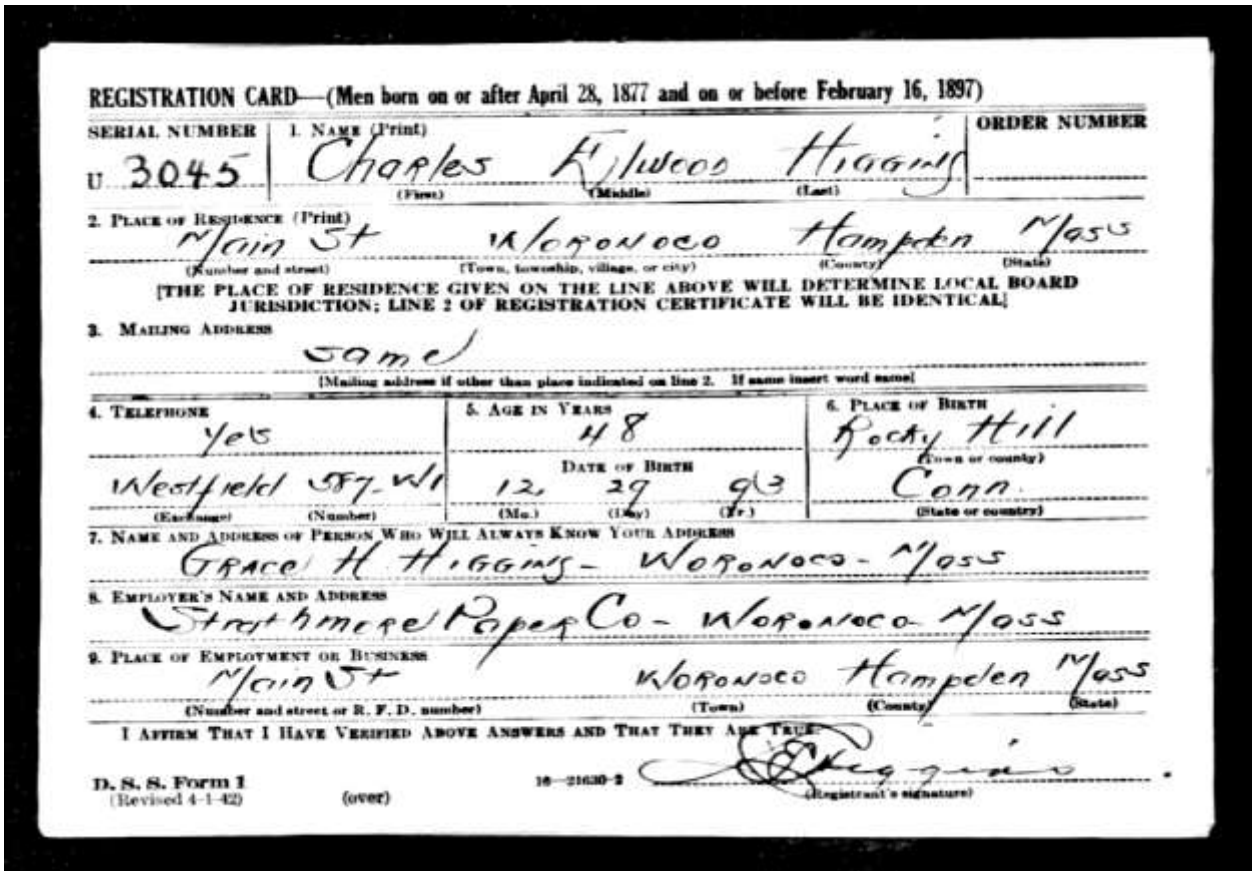 REGISTRATION CARD—(Men born on or after April 28, 1877 and on or before February 16, 1897)
SERIAL NUMBER 1. NAME (Print) ORDER NUMBER
U 3045 Charles Elwood Higgins
(First) (Middle) (Last)
2. PLACE OF RESIDENCE (Print)
Main St Woronoco Hampden Mass
(Number and street) (Town, township, village, or city) (County) (State)
[THE PLACE OF RESIDENCE GIVEN ON THE LINE ABOVE WILL DETERMINE LOCAL BOARD
JURISDICTION; LINE 2 OF REGISTRATION CERTIFICATE WILL BE IDENTICAL]
3. MAILING ADDRESS
same
[Mailing address if other than place indicated on line 2. If same insert word same]
4. TELEPHONE 5. AGE IN YEARS 6. PLACE OF BIRTH
Yes 48 Rocky Hill
DATE OF BIRTH (Town or county)
Westfield 587-W1 12, 29 93 Conn.
(Exchange) (Number) (Mo.) (Day) (Yr.) (State or country)
7. NAME AND ADDRESS OF PERSON WHO WILL ALWAYS KNOW YOUR ADDRESS
Grace H. Higgins- Woronoco- Mass
8. EMPLOYER'S NAME AND ADDRESS
Strathmore Paper Co- Woronoco Mass
9. PLACE OF EMPLOYMENT OR BUSINESS
Main St Woronoco Hampden Mass
(Number and street or R. F. D. number) (Town) (County) (State)
I AFFIRM THAT I HAVE VERIFIED ABOVE ANSWERS AND THAT THEY ARE TRUE.
C E Higgins
D. S. S. Form 1 16—21630-2 (Registrant's signature)
(Revised 4-1-42) (over)